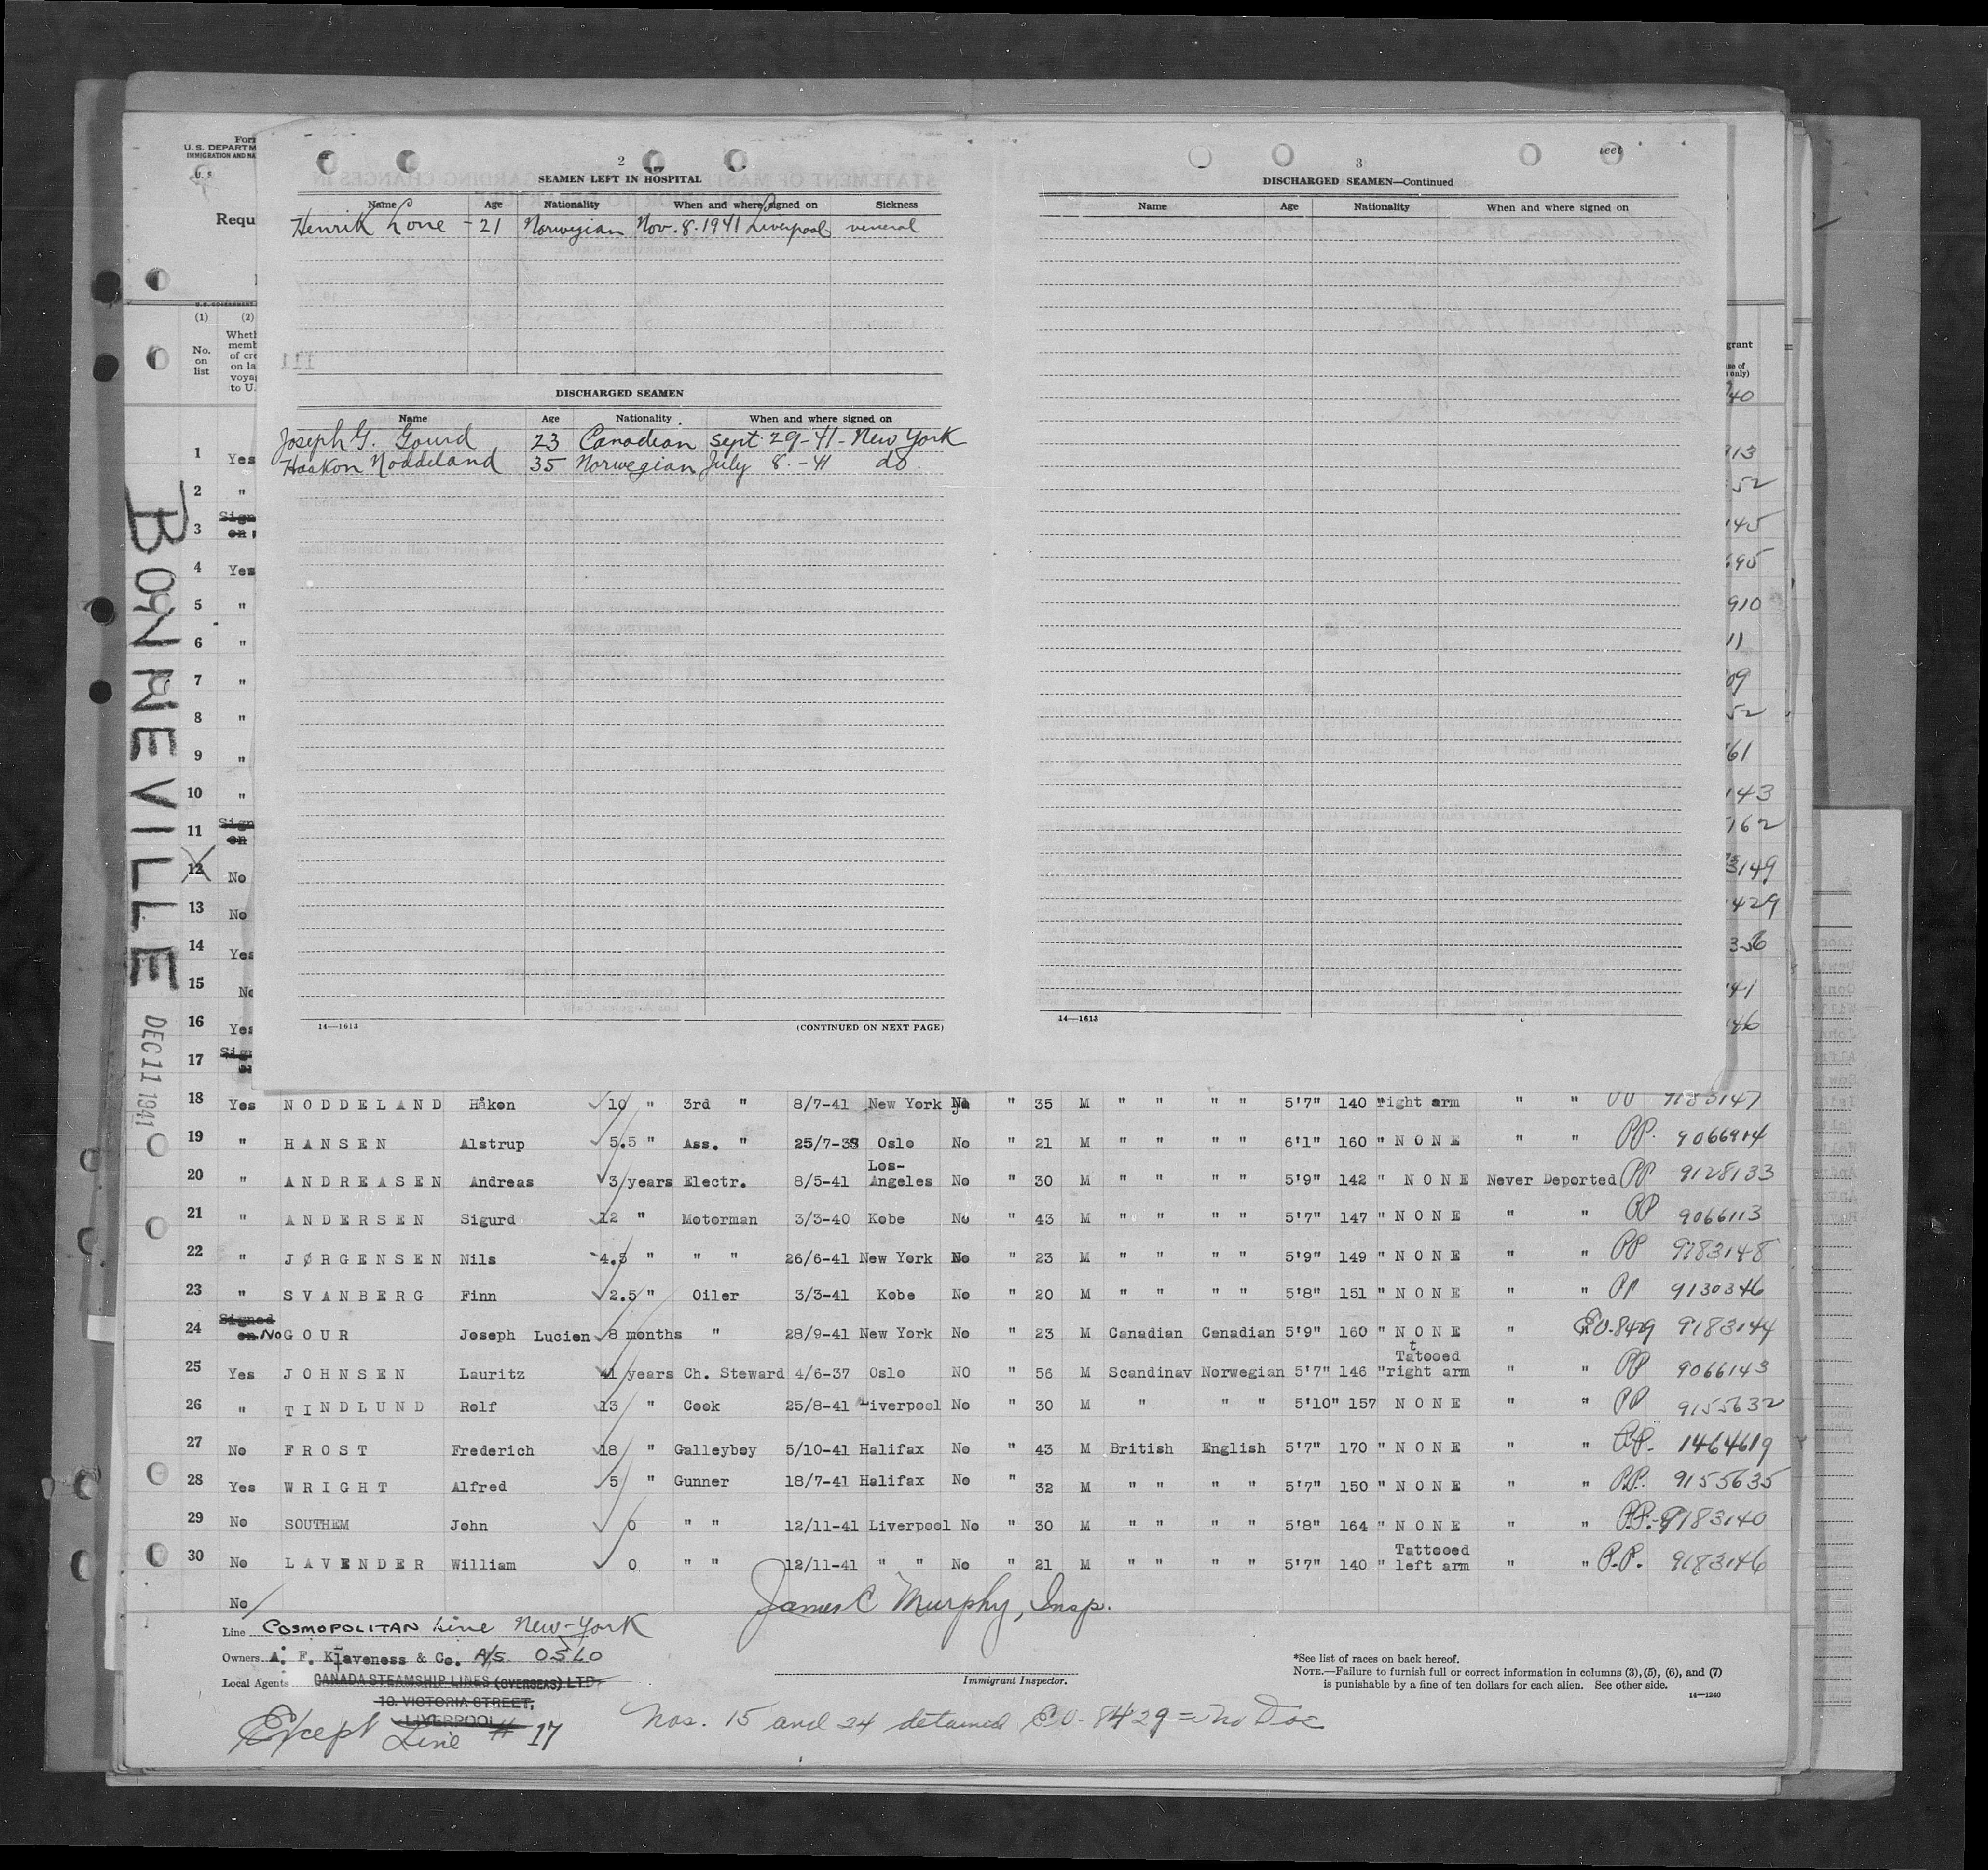 Form
U. S. DEPARTM
IMMIGRATION AND NA
U. S
Requ
(1) (2)
No. on list
Wheth
memb
of cre
on la
voyag
to U.
2
SEAMEN LEFT IN HOSPITAL
Name Age Nationality When and where signed on Sickness
Henrik Lone - 21 Norwegian Nov. 8. 1941 Liverpool veneral
DISCHARGED SEAMEN
Name Age Nationality When and where signed on
Joseph G. Gourd 23 Canadian Sept. 29-41- New York
Haakon Noddeland 35 Norwegian July 8.-41 do.
14—1613 (CONTINUED ON NEXT PAGE)
3
DISCHARGED SEAMEN—Continued
Name Age Nationality When and where signed on
14—1613
BONNEVILLE
DEC 11 1941
1 Yes
2 "
3 Sign on
4 Yes
5 "
6 "
7 "
8 "
9 "
10 "
11 Sign on
12 No
13 No
14 Yes
15 No
16 Yes
17 Sig
18 Yes NODDELAND Håkon 10 " 3rd " 8/7-41 New York No " 35 M " " " " 5'7" 140 right arm " " 9183147
19 " HANSEN Alstrup 5.5 " Ass. " 25/7-38 Oslo No " 21 M " " " " 6'1" 160 " NONE " " PP. 9066914
20 " ANDREASEN Andreas 3 years Electr. 8/5-41 Los-Angeles No " 30 M " " " " 5'9" 142 " NONE Never Deported PP 9128133
21 " ANDERSEN Sigurd 12 " Motorman 3/3-40 Kobe No " 43 M " " " " 5'7" 147 " NONE " " PP 9066113
22 " JØRGENSEN Nils 4.5 " " " 26/6-41 New York No " 23 M " " " " 5'9" 149 " NONE " " PP 9183148
23 " SVANBERG Finn 2.5 " Oiler 3/3-41 Kobe No " 20 M " " " " 5'8" 151 " NONE " " PP 9130346
24 Signed on. No GOUR Joseph Lucien 8 months " 28/9-41 New York No " 23 M Canadian Canadian 5'9" 160 " NONE " E.O. 8429 9183144
25 Yes JOHNSEN Lauritz 41 years Ch. Steward 4/6-37 Oslo NO " 56 M Scandinav Norwegian 5'7" 146 " Tatooed right arm " " PP 9066143
26 " TINDLUND Rolf 13 " Cook 25/8-41 Liverpool No " 30 M " " " 5'10" 157 NONE " " PP 9155632
27 No FROST Frederich 18 " Galleyboy 5/10-41 Halifax No " 43 M British English 5'7" 170 " NONE " " PP. 1464619
28 Yes WRIGHT Alfred 5 " Gunner 18/7-41 Halifax No " 32 M " " " " 5'7" 150 " NONE " " P.P. 9155635
29 No SOUTHEM John 0 " " 12/11-41 Liverpool No " 30 M " " " " 5'8" 164 " NONE " " P.P.- 9183140
30 No LAVENDER William 0 " " 12/11-41 " " No " 21 M " " " " 5'7" 140 " Tattooed left arm " " P.P. 9183146
No
James C Murphy, Insp.
Line COSMOPOLITAN Line New-York
Owners A. F. Klaveness & Co. A/S OSLO
Local Agents CANADA STEAMSHIP LINES (OVERSEAS) LTD.
10. VICTORIA STREET,
LIVERPOOL
Immigrant Inspector.
*See list of races on back hereof.
NOTE.—Failure to furnish full or correct information in columns (3), (5), (6), and (7)
is punishable by a fine of ten dollars for each alien. See other side.
14—1240
Except Line # 17
Nos. 15 and 24 detained E.O- 8429 = no Doc